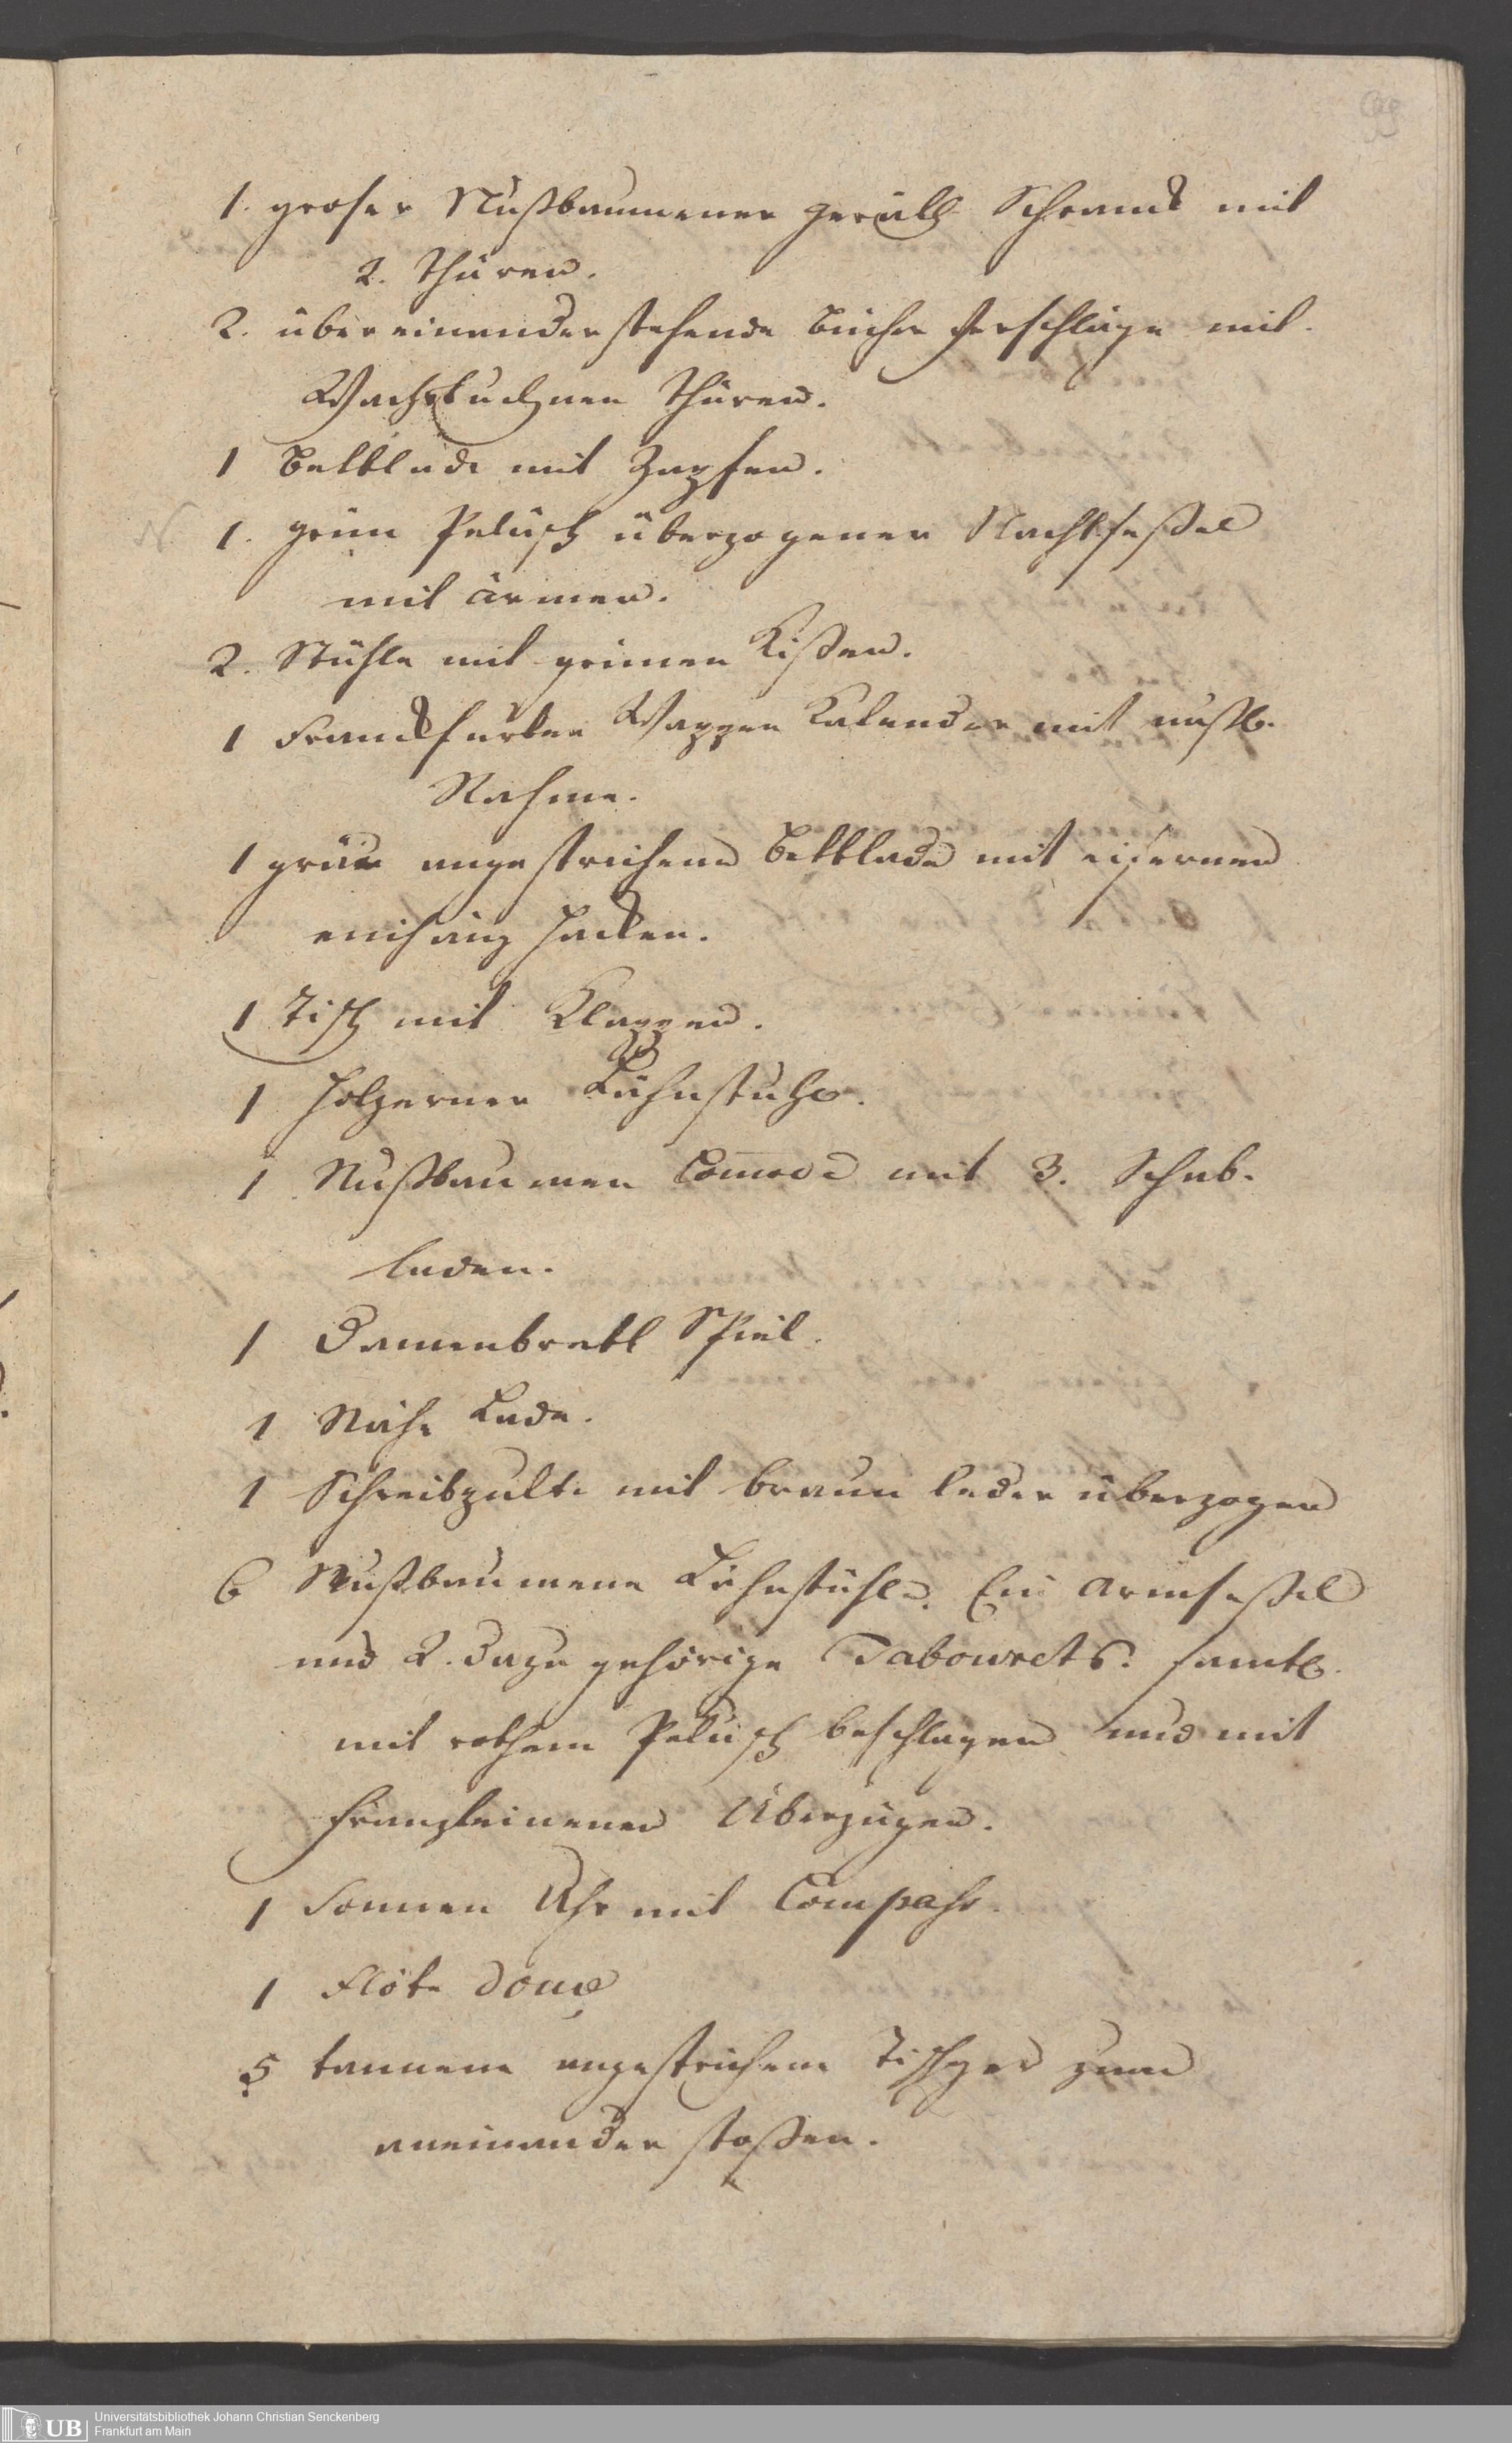 1. groser Nußbaumener geräth Schranck mit
2. Thüren.
2. übereinanderstehende bücher verschläge mit
Wachstuchnen Thüren.
1 bettlade mit Zapfen.
1. grün Pelüsch überzogener Nachtseßel
mit ärmen.
2. Stühle mit grünen Kißen.
1 Franckfurter Wappen Calender mit nußb.
Rahme.
1 grün angestrichene Bettlade mit eisernen
umhäng hacken.
1 Tisch mit Klappen.
1 holzerner Lähnstuhl.
1 Nußbaumen Comode mit 3. Schub-
laden.
1 Damenbrett Spiel.
1 Nähe Lade.
1 Schreibpulte mit braun leder überzogen
6 Nußbaumene Lähnstühle. Ein armseßel
und 2. dazu gehörige Tabourets. samtl.
mit rothem Pelüsch beschlagen und mit
franzleinenen Überzügen.
1 Sonnen Uhr mit Compaß.
1 Flöte douce
5 tannene angestrichene Tischger zum
aneinander stoßen.
UB
Universitätsbibliothek Johann Christian Senckenberg
Frankfurt am Main